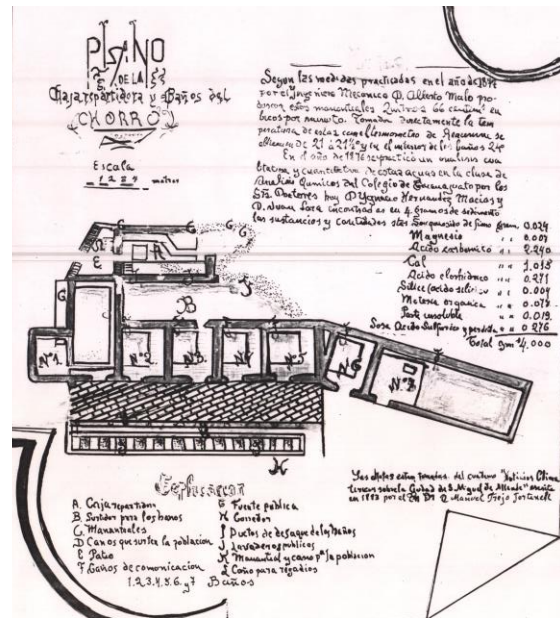 PLANO
DE LA
Caja repartidora y Baños del
CHORRO
Escala
metros
Segun las medidas practicadas en el año de
por el Ingeniero Mecanico D. Alberto Malo pro-
ducen estos manantiales Quinros 66 centim. cu
bicos por minuto. Tomada directamente la tem
peratura de estas con el termometro de Reaumur se
obtienen de 21 á 21½° y en el interior de los baños 24°
En el año de 1876 se practicó un analisis cua
litativo y cuantitativo de estas aguas en la clase de
Analisis Quimicos del Colegio de Guanajuato por los
Sres Doctores hoy D Ygnacio Hernandez Macias y
D. Juan Lara encontrandose en 4 gramos de sedimento
las sustancias y cantidades stes
0.024
Magnesio " " 0.007
Acido carbonico " " 2.240
Cal " " 1.015
Acido clorhidrico " " 0.271
Silice (acido silicico) " " 0.001
Materia organica " " 0.078
Parte insoluble " " 0.019.
Sosa Acido Sulfurico y perdida " " 0.276
Total gm 4.000
Nº1
Nº2
Nº3
Nº4
Nº5
Nº6
Nº7
Esplicacion
A. Caja repartidora
B. Surtidor para los banos
C. Manantiales
D Canos que surten la poblacion
E Patio
F Caños de comunicacion
G Fuente publica
H Corredor
I Ductos de desague de los Baños
J Lavaderos publicos
K Manantial y cano pª la poblacion
L Caño para regadios
1.2.3.4.5.6. y 7 Baños
Los datos estan tomados del cuaderno "Noticias
sobre la Ciudad de S. Miguel de Allende" escrita
en 1883 por el Manuel Trejo